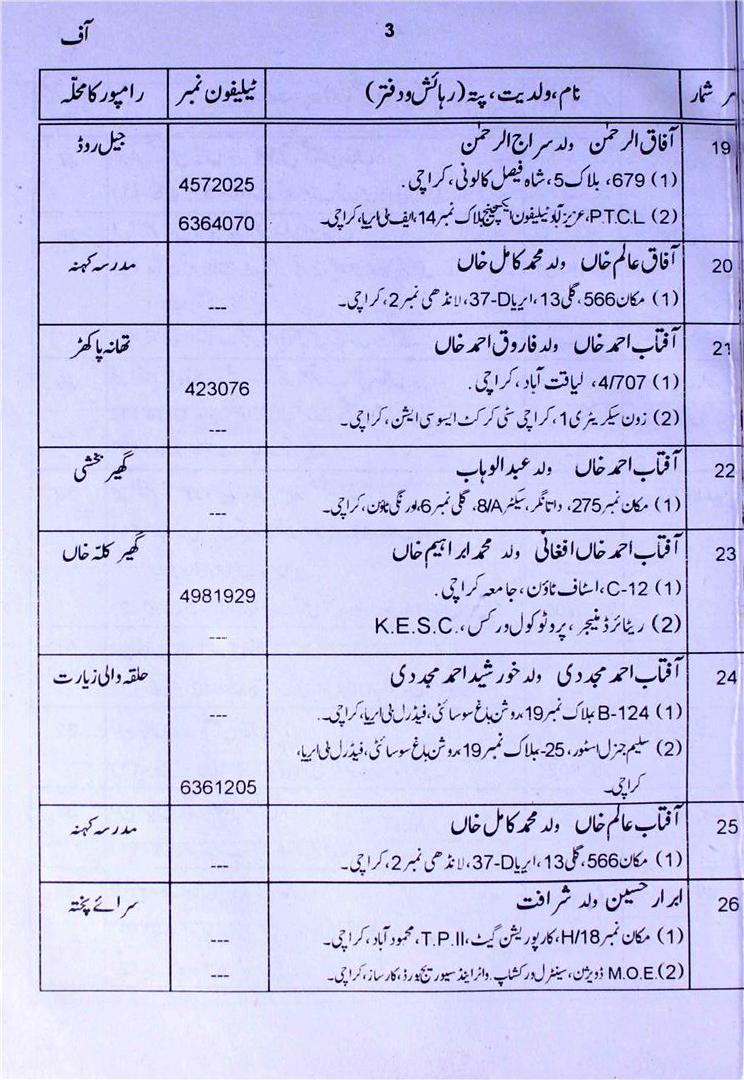 آف
3
نمبر شمار	نام، ولدیت، پتہ (رہائش و دفتر)	ٹیلیفون نمبر	رامپور کا محلّہ
19	آفاق الرحمٰن ولد سراج الرحمٰن	جیل روڈ
(1) 679، بلاک 5، شاہ فیصل کالونی، کراچی۔	4572025
(2) P.T.C.L، عزیز آباد ٹیلیفون ایکسچینج بلاک نمبر 14، ایف بی ایریا، کراچی۔	6364070
20	آفاق عالم خاں ولد محمد کامل خاں	مدرسہ کہنہ
(1) مکان 566، گلی 13، ایریا 37-D، لانڈھی نمبر 2، کراچی۔	---
21	آفتاب احمد خاں ولد فاروق احمد خاں	تھانہ پاکھڑ
(1) 4/707، لیاقت آباد، کراچی۔	423076
(2) زون سیکریٹری 1، کراچی سٹی کرکٹ ایسوسی ایشن، کراچی۔	---
22	آفتاب احمد خاں ولد عبدالوہاب	گھیر بخشی
(1) مکان نمبر 275، داتا نگر، سیکٹر 8/A، گلی نمبر 6، اورنگی ٹاؤن، کراچی۔	---
23	آفتاب احمد خاں افغانی ولد محمد ابراہیم خاں	گھیر کلّہ خاں
(1) C-12، اسٹاف ٹاؤن، جامعہ کراچی۔	4981929
(2) ریٹائرڈ منیجر، پروٹوکول ورکس، K.E.S.C.	---
24	آفتاب احمد مجددی ولد خورشید احمد مجددی	حلقہ والی زیارت
(1) B-124 بلاک نمبر 19، روشن باغ سوسائٹی، فیڈرل بی ایریا، کراچی۔	---
(2) سلیم جنرل اسٹور، 25-بلاک نمبر 19، روشن باغ سوسائٹی، فیڈرل بی ایریا،
کراچی۔	6361205
25	آفتاب عالم خاں ولد محمد کامل خاں	مدرسہ کہنہ
(1) مکان 566، گلی 13، ایریا 37-D، لانڈھی نمبر 2، کراچی۔	---
26	ابرار حسین ولد شرافت	سرائے پختہ
(1) مکان نمبر H/18، کارپوریشن گیٹ، T.P.II، محمود آباد، کراچی۔	---
(2) M.O.E. ڈویژن، سینٹرل ورکشاپ، واٹر اینڈ سیوریج بورڈ، کارساز، کراچی۔	---